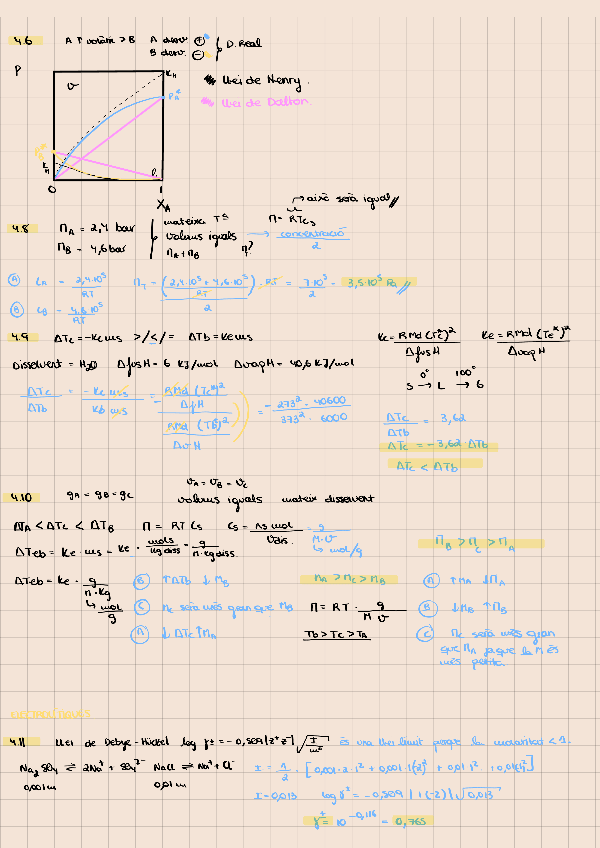 4.6 A ↑ volàtil > B A desv ⊕
B desv. ⊖ } D. Real
P
v
KH
PA*
Llei de Henry.
Llei de Dalton.
0 1
XA
4.8 ΠA = 2,4 bar
ΠB = 4,6 bar
mateixa Tª
volums iguals → concentració / 2
ΠA + ΠB Π?
Π = RTCs → això serà igual
Ⓐ CA = 2,4·10⁵ / RT
ΠT = ((2,4·10⁵ + 4,6·10⁵) / RT) · RT / 2 = 7·10⁵ / 2 = 3,5·10⁵ Pa
Ⓑ CB = 4,6·10⁵ / RT
4.9 ΔTc = -Kc ms >/</= ΔTb = Ke ms
Kc = R Md (Tc*)² / ΔfusH
Ke = R Md (Te*)² / ΔvapH
Dissolvent = H2O ΔfusH = 6 KJ/mol ΔvapH = 40,6 KJ/mol
0° 100°
S → L → G
ΔTc / ΔTb = -Kc ms / Kb ms = - (R Md (Tc*)² / ΔfH) / (R Md (Tb*)² / ΔvH) = -273² · 40600 / 373² · 6000
ΔTc / ΔTb = 3,62
ΔTc = -3,62 · ΔTb
ΔTc < ΔTb
4.10 gA = gB = gC
VA = VB = VC
volums iguals mateix dissolvent
ΔTA < ΔTC < ΔTB Π = RT Cs Cs = ns mol / Vdis. = g / M·V
→ mol/g
ΔTeb = Ke · ms = Ke · mols / kg diss = g / M·kg diss.
ΠB > ΠC > ΠA
ΔTeb = Ke · g / M·Kg
→ mol / g
Ⓑ ↑ΔTb ↓MB
Ⓒ Mc serà més gran que MB
Ⓐ ↓ΔTc ↑MA
MA > MC > MB
Π = RT · g / M V
TB > TC > TA
Ⓐ ↑MA ↓ΠA
Ⓑ ↓MB ↑ΠB
Ⓒ Πc serà més gran
que ΠA ja que la M és
més petita.
ELECTROLÍTIQUES
4.11 Llei de Debye-Hückel log γ± = -0,509 |z⁺z⁻| √(I / m°) és una llei límit perquè la molaritat < 1.
Na2SO4 ⇌ 2Na⁺ + SO4²⁻ NaCl ⇌ Na⁺ + Cl⁻
0,001m 0,01m
I = 1/2 · [0,001·2·1² + 0,001·1(2)² + 0,01·1² + 0,01(1)²]
I = 0,013 log γ± = -0,509 |1(-2)| √0,013
γ± = 10^-0,116 = 0,765